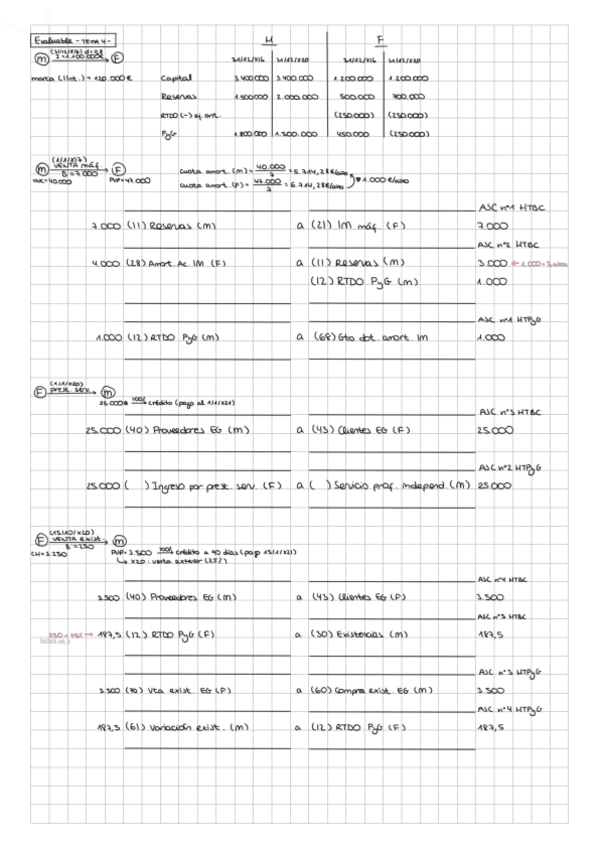 Evaluable - TEMA 4 -
M F
(31/12/X16) d=0,8
M I=1.100.000€ F
31/12/X16 31/12/X20 31/12/X16 31/12/X20
marca (Int.) = 120.000€ Capital 3.400.000 3.400.000 1.200.000 1.200.000
Reservas 1.500.000 2.000.000 500.000 700.000
RTDO (-) ej. ant. (250.000) (250.000)
PyG 1.800.000 1.300.000 450.000 (250.000)
(1/1/X17)
M VENTA máq. F
B=7.000
VNC=40.000 PVP=47.000
cuota amort. (M) = 40.000/7 = 5.714,28€/año
cuota amort. (F) = 47.000/7 = 6.714,28€/año
1.000€/año
ASC nº1 HTBC
7.000 (11) Reservas (M) a (21) IM máq. (F) 7.000
ASC nº2 HTBC
4.000 (28) Amort. Ac. IM (F) a (11) Reservas (M) 3.000 ← 1.000×3 años
(12) RTDO PyG (M) 1.000
ASC nº1 HTPyG
1.000 (12) RTDO PyG (M) a (68) Gto dot. amort. IM 1.000
(1/1/X20)
F prest. serv. M
25.000€ 100% crédito (pago al 1/1/X21)
ASC nº3 HTBC
25.000 (40) Proveedores EG (M) a (43) Clientes EG (F) 25.000
ASC nº2 HTPyG
25.000 ( ) Ingreso por prest. serv. (F) a ( ) Servicio prof. independ. (M) 25.000
(15/10/X20)
F VENTA exist. M
B=250
CM=3.250 PVP=3.500 100% crédito a 90 días (pago 15/1/X21)
↳ X20: venta exterior (25%)
ASC nº4 HTBC
3.500 (40) Proveedores EG (M) a (43) Clientes EG (F) 3.500
ASC nº5 HTBC
250 × 75% → 187,5 (12) RTDO PyG (F) a (30) Existencias (M) 187,5
ASC nº3 HTPyG
3.500 (70) Vta exist. EG (F) a (60) Compra exist. EG (M) 3.500
ASC nº4 HTPyG
187,5 (61) Variación exist. (M) a (12) RTDO PyG (F) 187,5